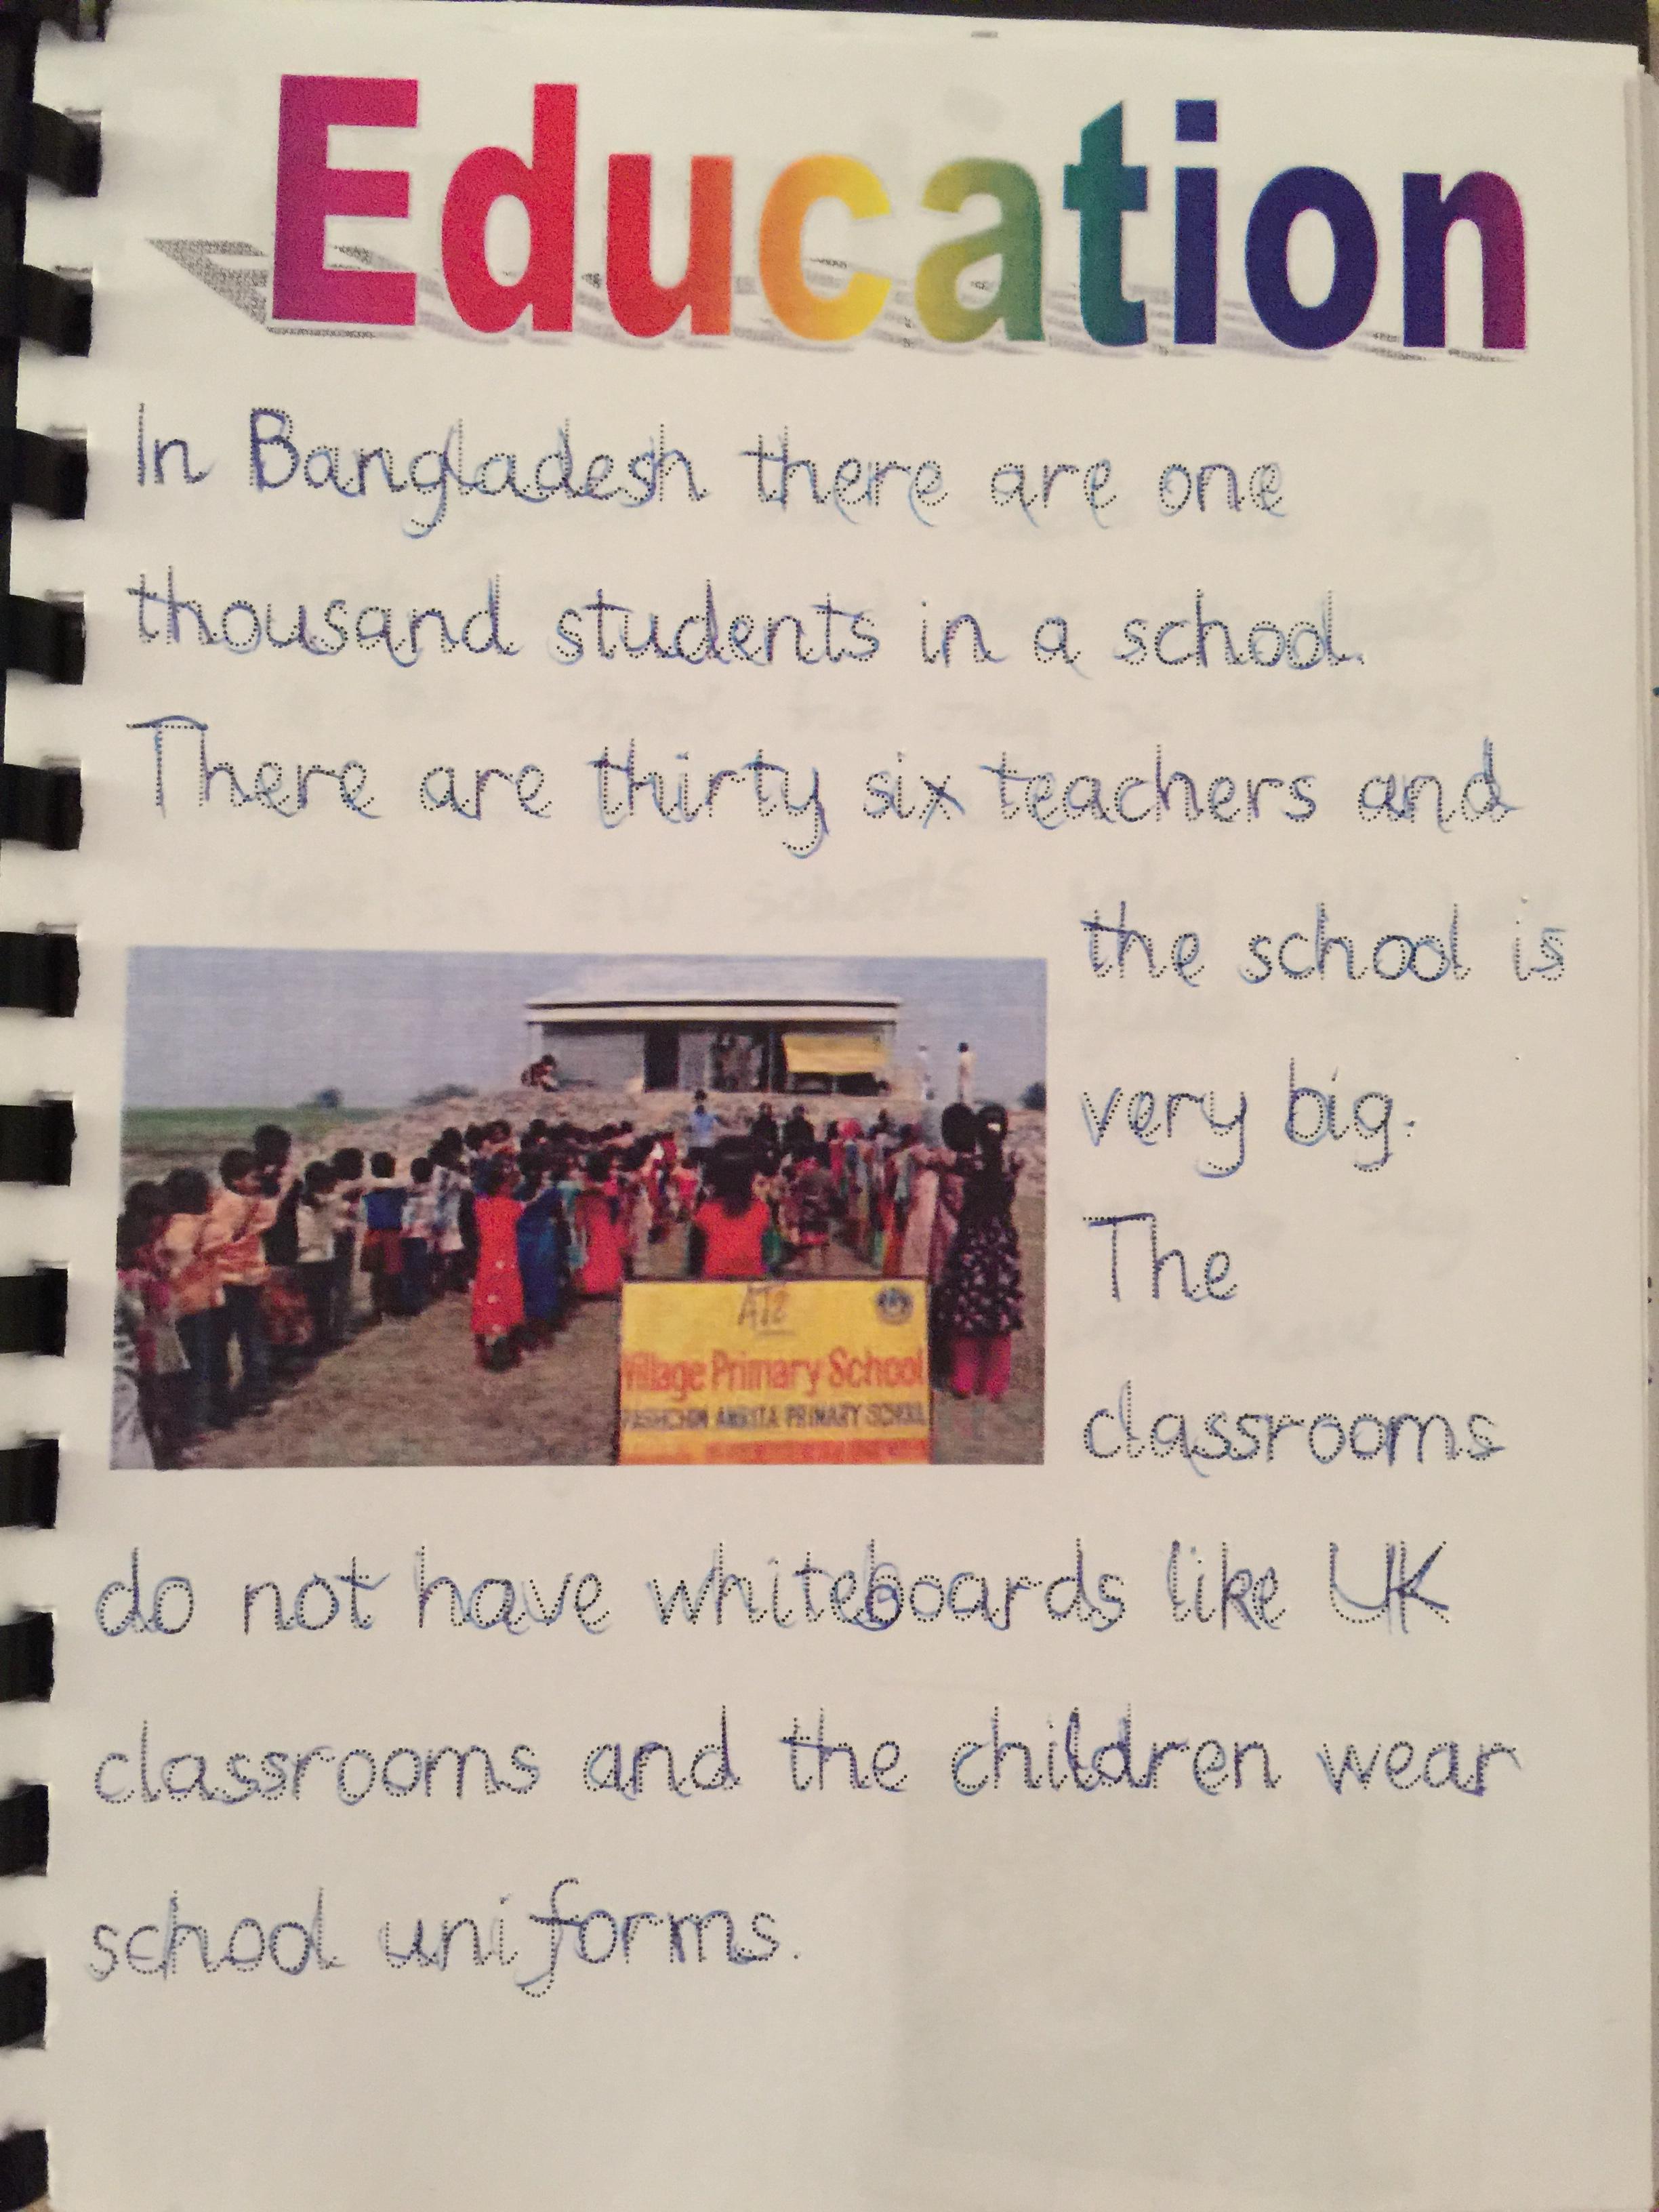 Education
In Bangladesh there are one
thousand students in a school.
There are thirty six teachers and
the school is
very big.
The
classrooms
AT2
Village Primary School
PRIMARY SCHOOL
do not have whiteboards like UK
classrooms and the children wear
school uniforms.